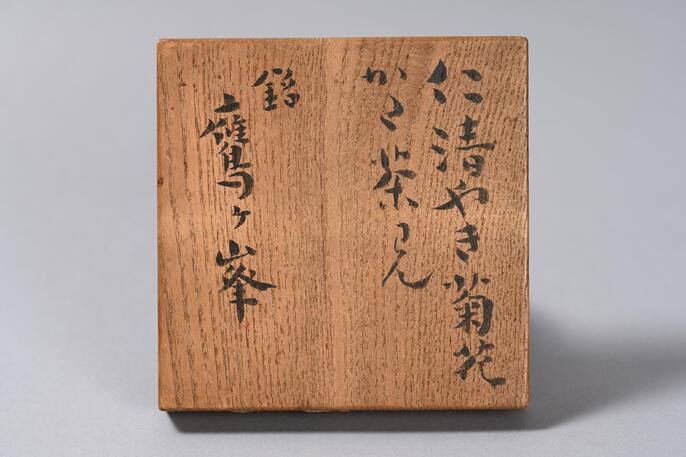 仁清やき菊花
かた茶わん
銘
鷹ヶ峯